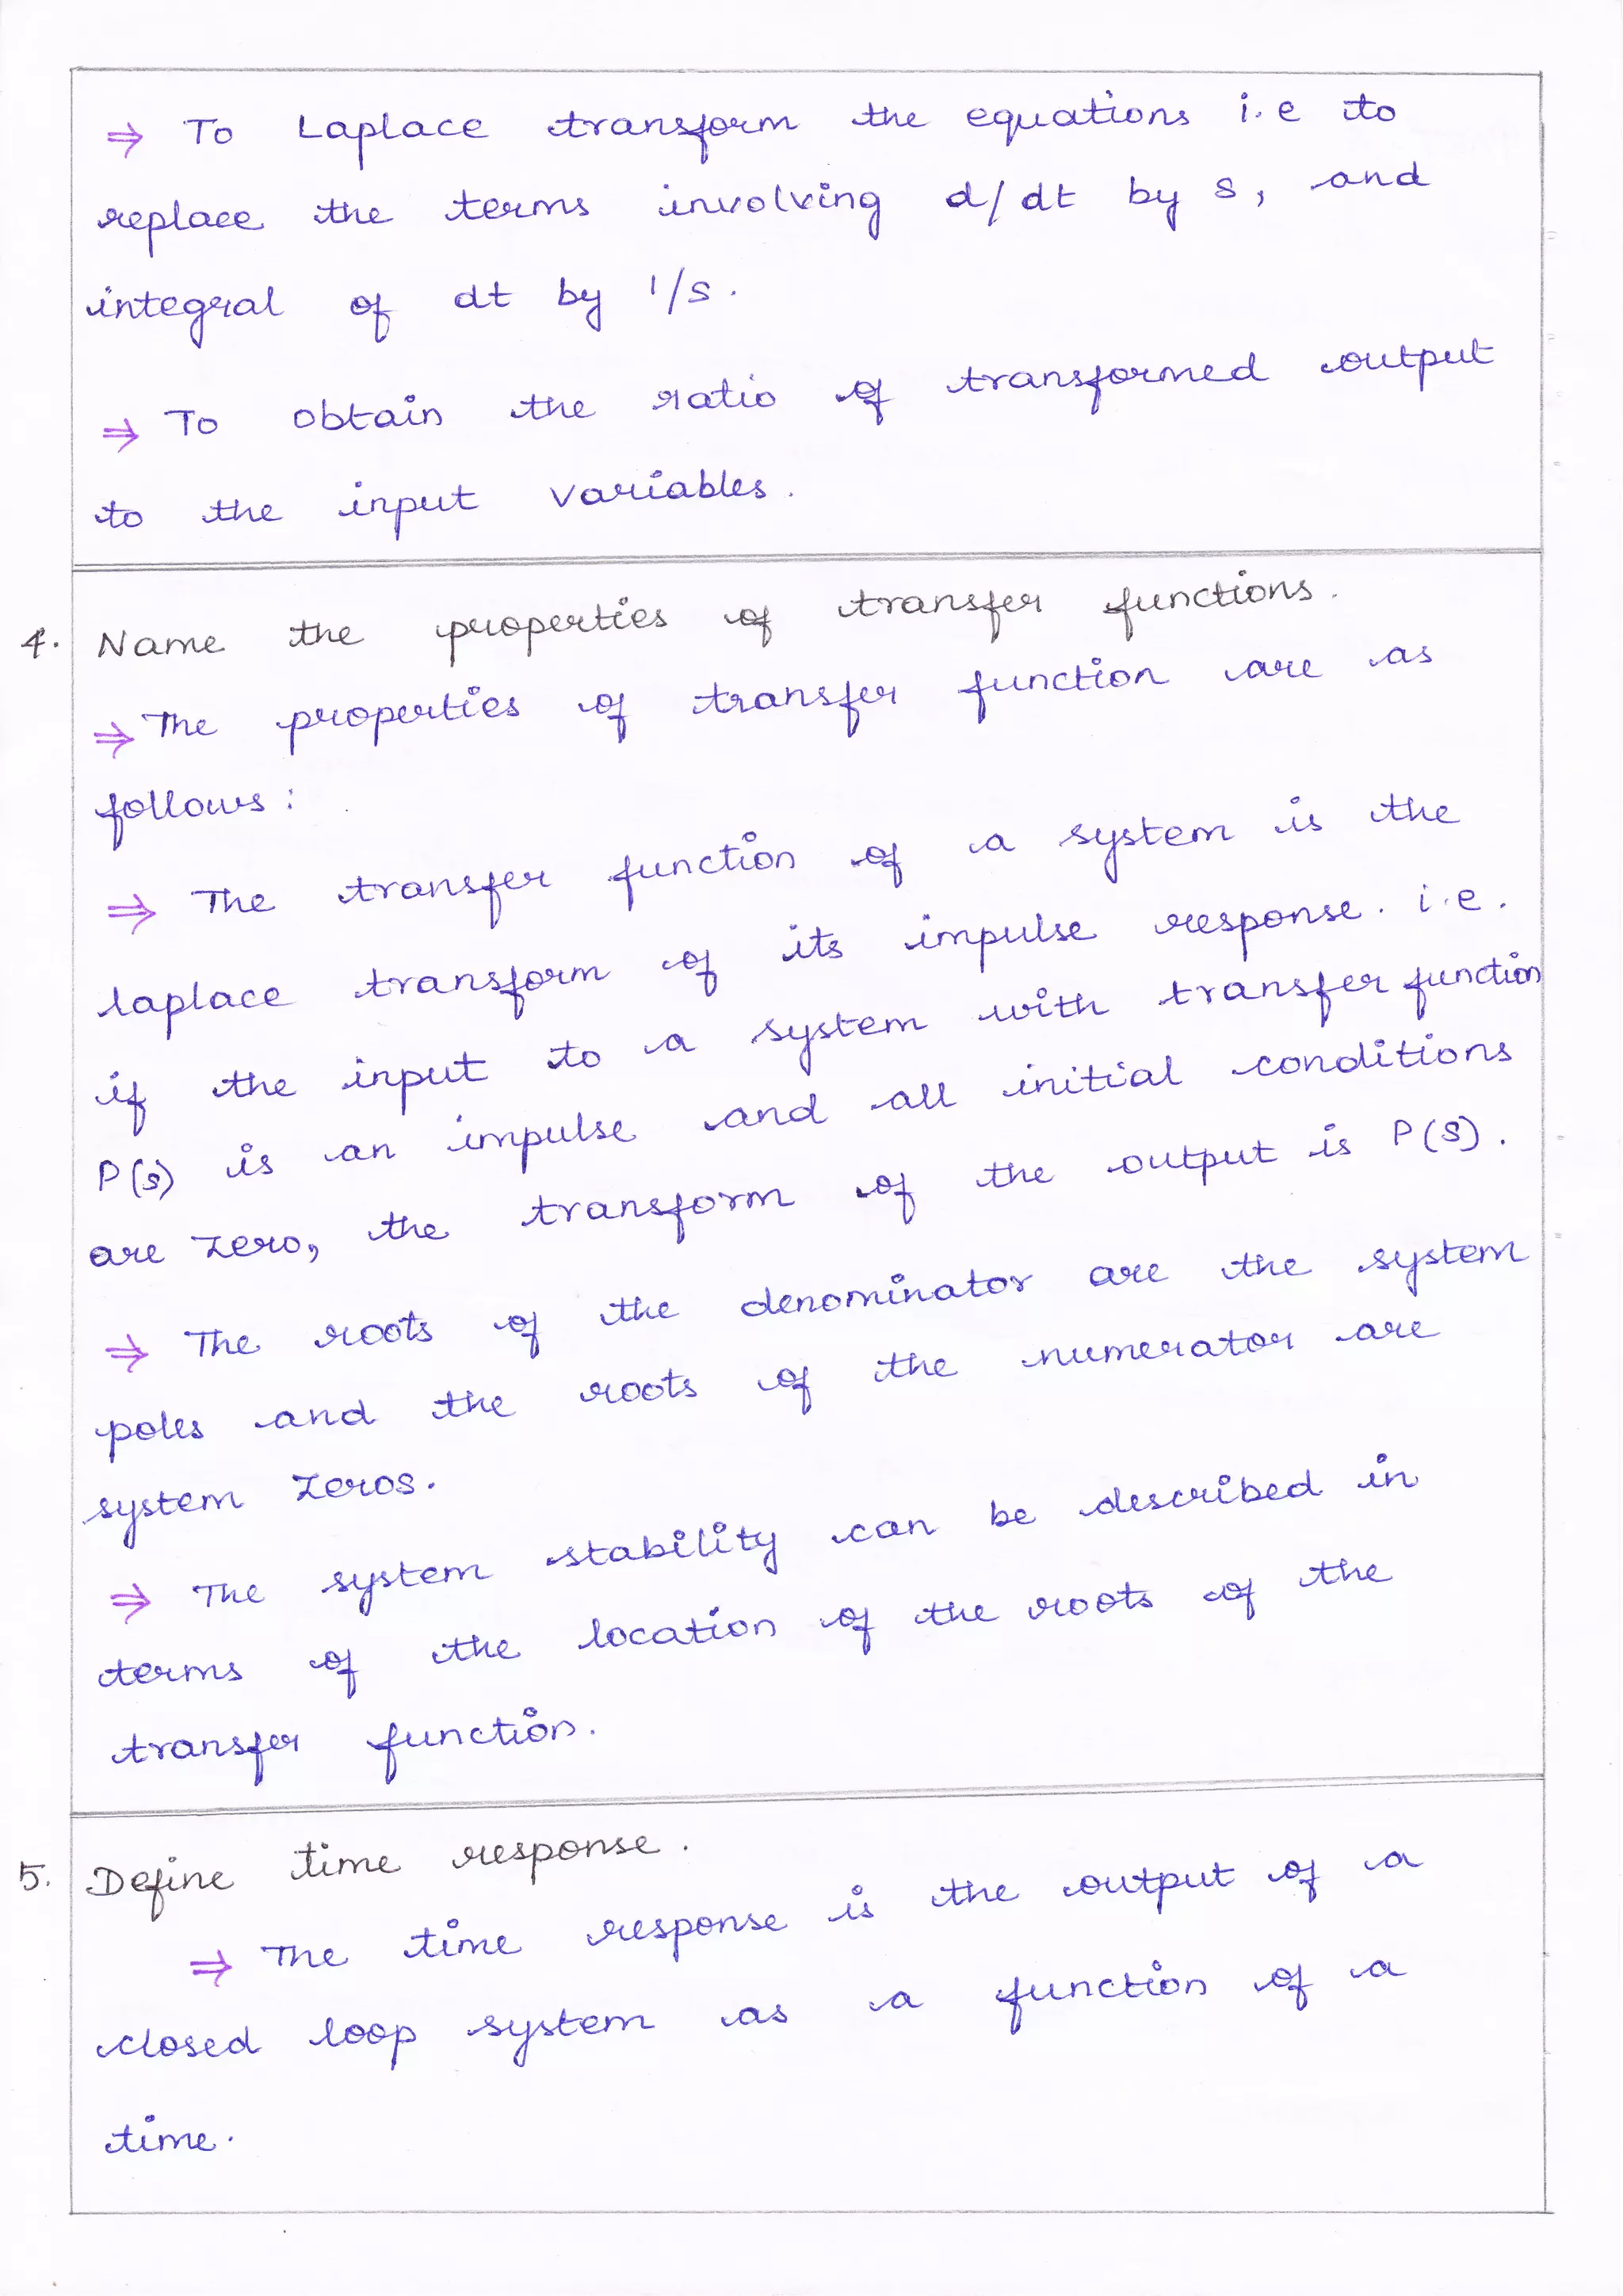 ⇒ To Laplace transform the equations i.e to
replace the terms involving d/dt by s, and
integral of dt by 1/s.
⇒ To obtain the ratio of transformed output
to the input variables.
4. Name the properties of transfer functions.
⇒ The properties of transfer function are as
follows:
⇒ The transfer function of a system is the
laplace transform of its impulse response. i.e.
if the input to a system with transfer function
P(s) is an impulse and all initial conditions
are zero, the transform of the output is P(S).
⇒ The roots of the denominator are the system
poles and the roots of the numerator are
system zeros.
⇒ The system stability can be described in
terms of the location of the roots of the
transfer function.
5. Define time response.
⇒ The time response is the output of a
closed loop system as a function of a
time.